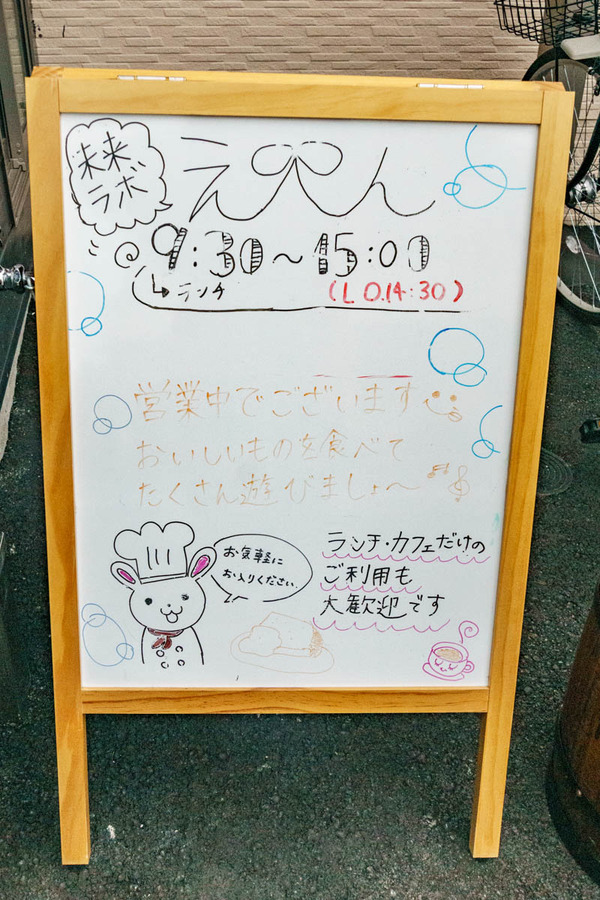 未来
ラボ
えん
9:30～15:00
↳ランチ
(L.O.14:30)
営業中でございます
おいしいものを食べて
たくさん遊びましょ～
お気軽に
お入りください
ランチ・カフェだけの
ご利用も
大歓迎です